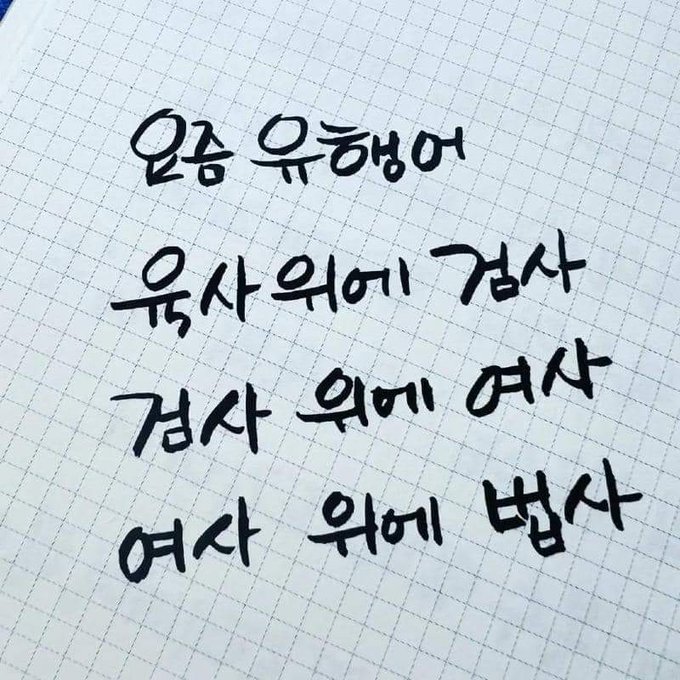 요즘 유행어
육사 위에 검사
검사 위에 여사
여사 위에 법사